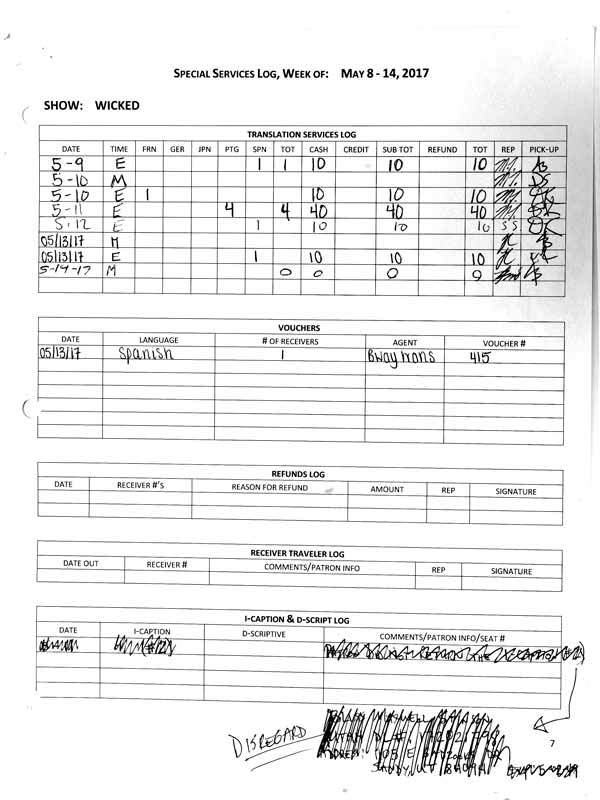 SPECIAL SERVICES LOG, WEEK OF: MAY 8 - 14, 2017
SHOW: WICKED
TRANSLATION SERVICES LOG
DATE TIME FRN GER JPN PTG SPN TOT CASH CREDIT SUB TOT REFUND TOT REP PICK-UP
5-9 E 1 1 10 10 10 AB
5-10 M DS
5-10 E 1 10 10 10
5-11 E 4 4 40 40 40
5.12 E 1 10 10 10 SS
05/13/17 M
05/13/17 E 1 10 10 10
5-14-17 M 0 0 0 0
VOUCHERS
DATE LANGUAGE # OF RECEIVERS AGENT VOUCHER #
05/13/17 Spanish 1 Bway trans 415
REFUNDS LOG
DATE RECEIVER #'S REASON FOR REFUND AMOUNT REP SIGNATURE
RECEIVER TRAVELER LOG
DATE OUT RECEIVER # COMMENTS/PATRON INFO REP SIGNATURE
I-CAPTION & D-SCRIPT LOG
DATE I-CAPTION D-SCRIPTIVE COMMENTS/PATRON INFO/SEAT #
DISREGARD
7